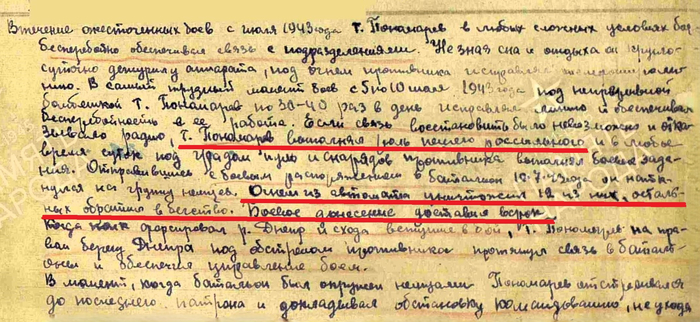 В течение ожесточенных боев с июля 1943 года т. Пономарев в любых сложных условиях боя
бесперебойно обеспечивал связь с подразделениями. Не зная сна и отдыха он кругло-
суточно дежурил у аппарата, под огнем противника исправлял линию
В самый трудный момент боев с 5 по 10 июля 1943 года под непрерывной
бомбежкой т. Пономарев по 30-40 раз в день исправлял линию и обеспечивал
бесперебойность в ее работе. Если связь восстановить было невозможно и отка-
зывало радио, т. Пономарев выполнял роль пешего рассыльного и в любое
время суток под градом пуль и снарядов противника выполнял боевые зада-
ния. Отправившись с боевым распоряжением в батальон 18.7.43 года он натк-
нулся на группу немцев. Огнем из автомата уничтожил 12 из них, осталь-
ных обратил в бегство. Боевое донесение доставил в срок.
Когда полк форсировал р. Днепр и сходу вступил в бой, т. Пономарев на пра-
вом берегу Днепра под обстрелом противника протянул связь в баталь-
оны и обеспечил управление боем.
В момент, когда батальон был окружен немцами Пономарев отстреливался
до последнего патрона и докладывал обстановку командованию, не уходя